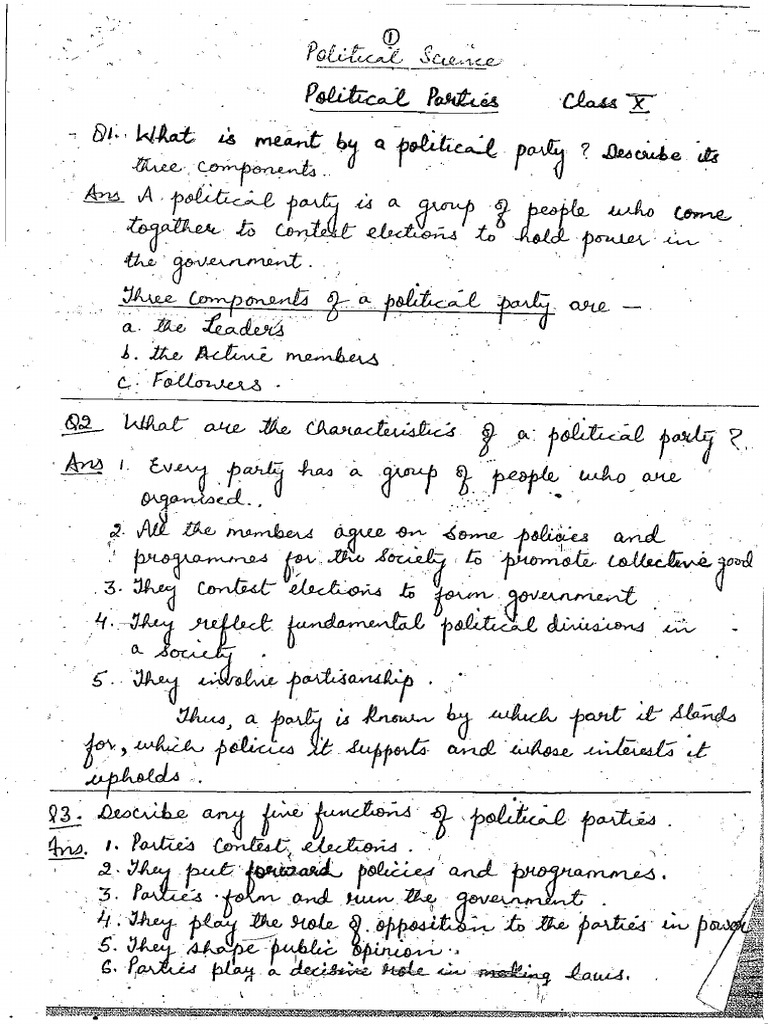 ①
Political Science
Political Parties Class X
Q1. What is meant by a political party? Describe its
three components.
Ans A political party is a group of people who come
togather to contest elections to hold power in
the government.
Three components of a political party are —
a. the Leaders
b. the Active members
c. Followers.
Q2 What are the characteristics of a political party?
Ans 1. Every party has a group of people who are
organised..
2. All the members agree on some policies and
programmes for the society to promote collective good
3. They contest elections to form government
4. They reflect fundamental political divisions in
a society.
5. They involve partisanship.
Thus, a party is known by which part it stands
for, which policies it supports and whose interests it
upholds.
Q3. Describe any five functions of political parties.
Ans. 1. Parties contest elections.
2. They put forward policies and programmes.
3. Parties form and run the government.
4. They play the role of opposition to the parties in power
5. They shape public opinion.
6. Parties play a decisive role in making laws.